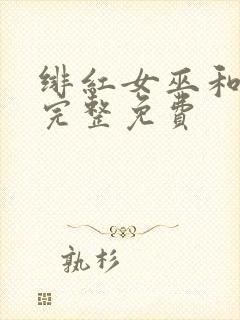 绯红女巫和
完整免費
孰杉